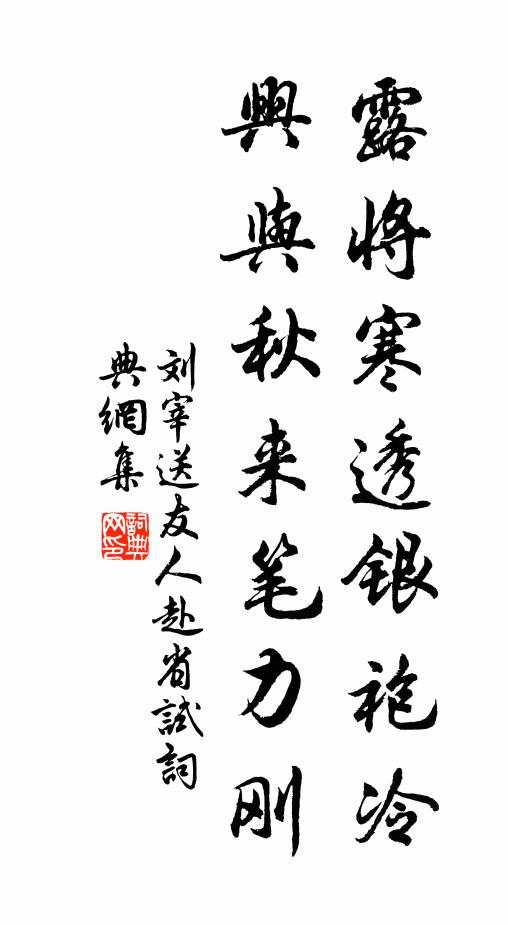 露將寒透銀袍冷
興與秋来笔力刚
刘宰送友人赴省試詞
典網集
詞典
网印